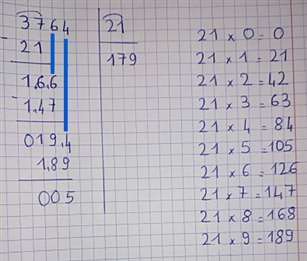 3764 21
21 179
1.6.6
- 1.47
019.4
1.89
005
21 × 0 = 0
21 × 1 = 21
21 × 2 = 42
21 × 3 = 63
21 × 4 = 84
21 × 5 = 105
21 × 6 = 126
21 × 7 = 147
21 × 8 = 168
21 × 9 = 189